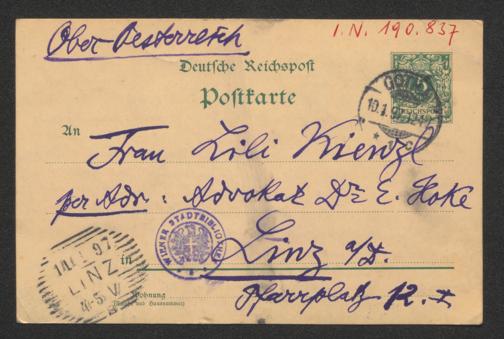 I.N. 190.837
Ober Oesterreich
Deutsche Reichspost
Postkarte
10.1.97
An
Frau Lili Kienzl
per Adr: Advokat Dr E. Hoke
WIENER STADTBIBLIOTHEK
in Linz a/D.
LINZ
Wohnung
(Straße und Hausnummer)
Pfarrplatz 12. I